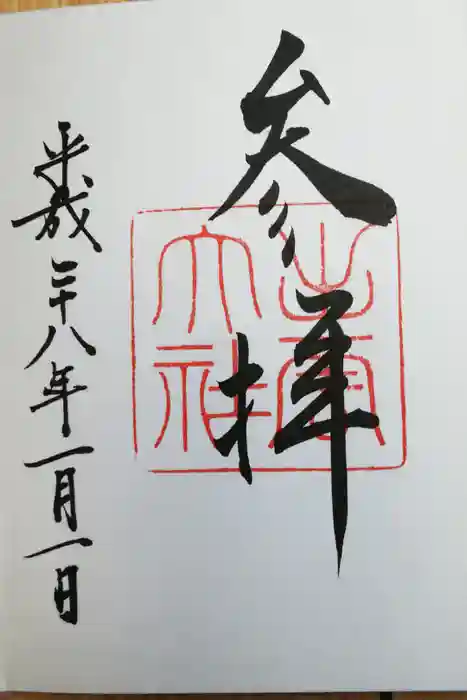 参拝
出雲大社
平成二十八年一月一日